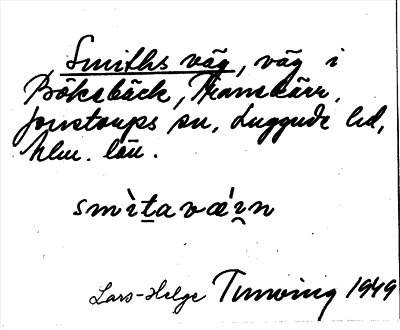 Smiths väg, väg i
Böksbäck, Tranekärr,
Jonstorps sn, Luggude hd,
Mlm. län.
smìt̠avǽi̯n
Lars-Helge Tunving 1949